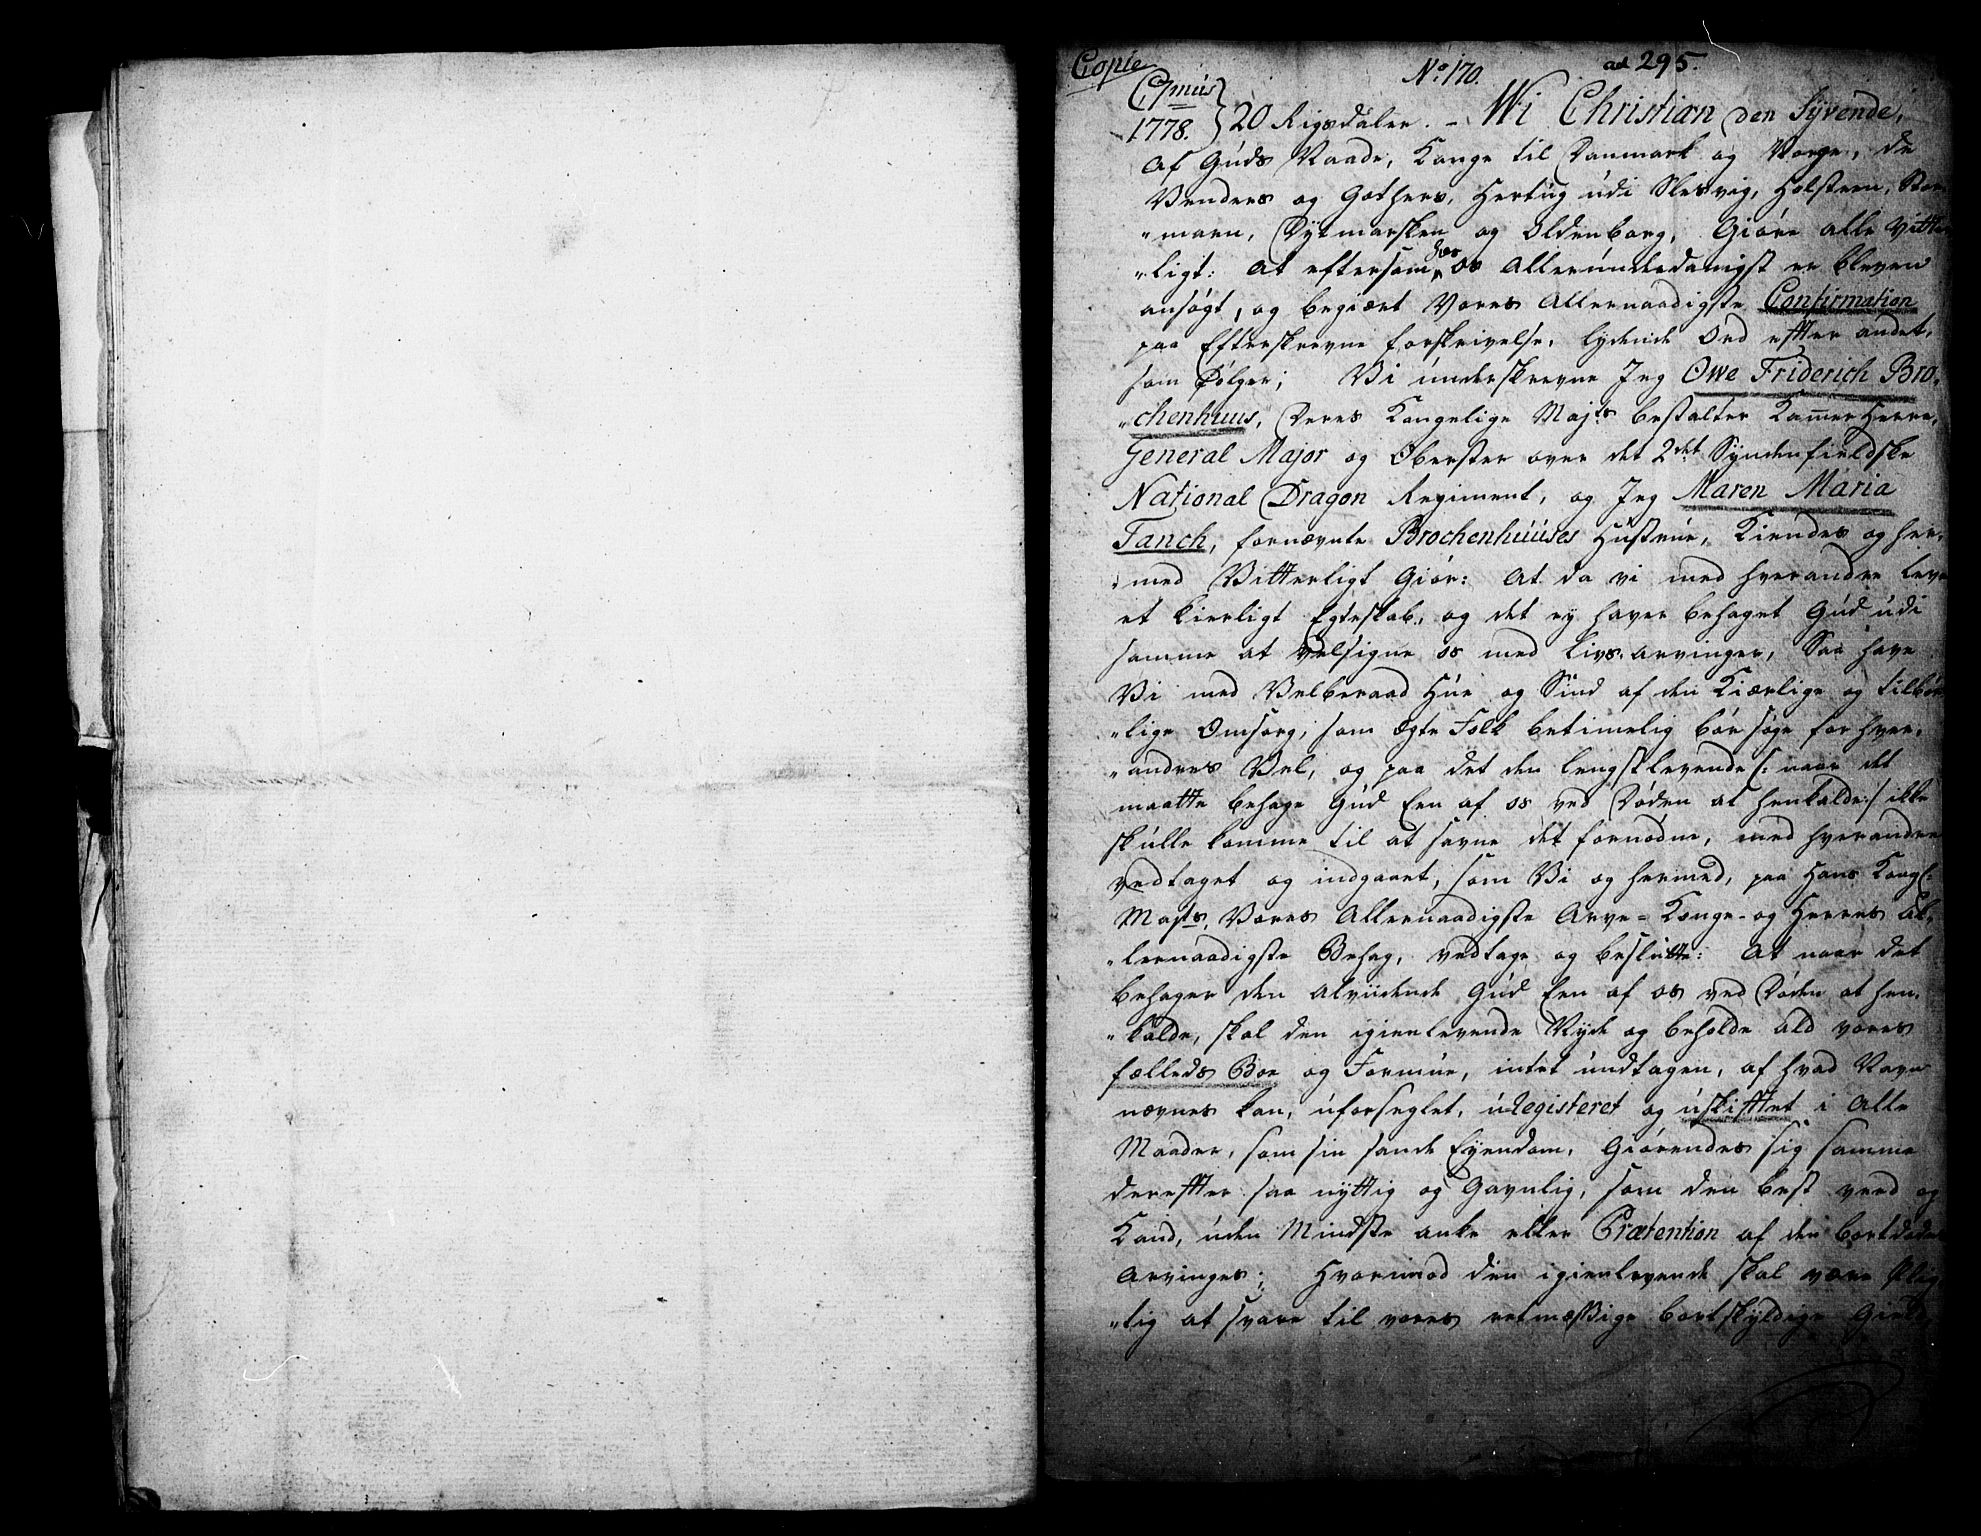 Copie
No 170.
ad 295.
C7mus
1778.
20 Rigsdaler. - Wi Christian den Syvende,
Af Guds Naade, Konge til Danmark og Norge, de
Venders og Gothers, Hertug udi Slesvig, Holsteen, Stor-
"marn, Dytmarsken og Oldenborg, Giøre alle Vitter-
"ligt: At eftersom hos os Allerunderdanigst er bleven
ansøgt, og begiært Vores Allernaadigste Confirmation
paa Efterskrevne Forskrivelse, lydende Ord efter andet,
som følger; Vi underskrevne Jeg Owe Friderich Bro-
"chenhuus, Deres Kongelige Majts bestalter KamerHerre,
General Major og Oberster over det 2det Syndenfieldske
National Dragon Regiment, og Jeg Maren Maria
Fanch, fornævnte Brochenhuuses Hustrue, Kiendes og her-
"med Vitterligt Giør: At da vi med hverandre leve
et kierligt Egteskab, og det ey haver behaget Gud udi
samme at velsigne os med Livs-arvinger, Saa have
Vi med Velberaad Hue og Sind af den Kiærlige og tilbør-
"lige Omsorg, som ægte Folk betimelig bør søge for hver-
"andres Vel, og paa det den lengstlevende /: naar det
maatte behage Gud Een af os ved Døden at henkalde :/ ikke
skulle komme til at savne det fornødne, med hverandre
vedtaget og indgaaet, som Vi og hermed, paa Hans Kongl:
Majts, Vores Allernaadigste Arve-Konge- og Herres Al-
"lernaadigste Behag, vedtage og beslutte: At naar det
behager den alviidende Gud Een af os ved Døden at hen-
"kalde, skal den igienlevende Nyde og beholde ald vores
fælleds Boe og Formue, intet undtagen, af hvad Navn
nævnes kan, uforseglet, uRegisteret og uskifttet i Alle
Maader, som sin sande Eyendom, Giørendes sig samme
dereftter saa nyttig og Gavnlig, som den best veed og
Kand, uden Mindste anke eller Prætention af den bortdødes
Arvinger; Hvorimod den igienlevende skal være plig-
"tig at svare til vores retmæssige bortskyldige Gield,